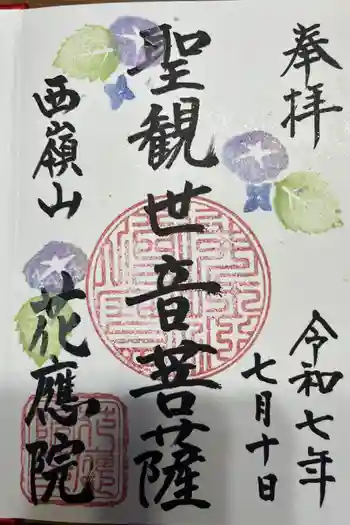 奉拝
令和七年
七月十日
聖観世音菩薩
西嶺山
花應院